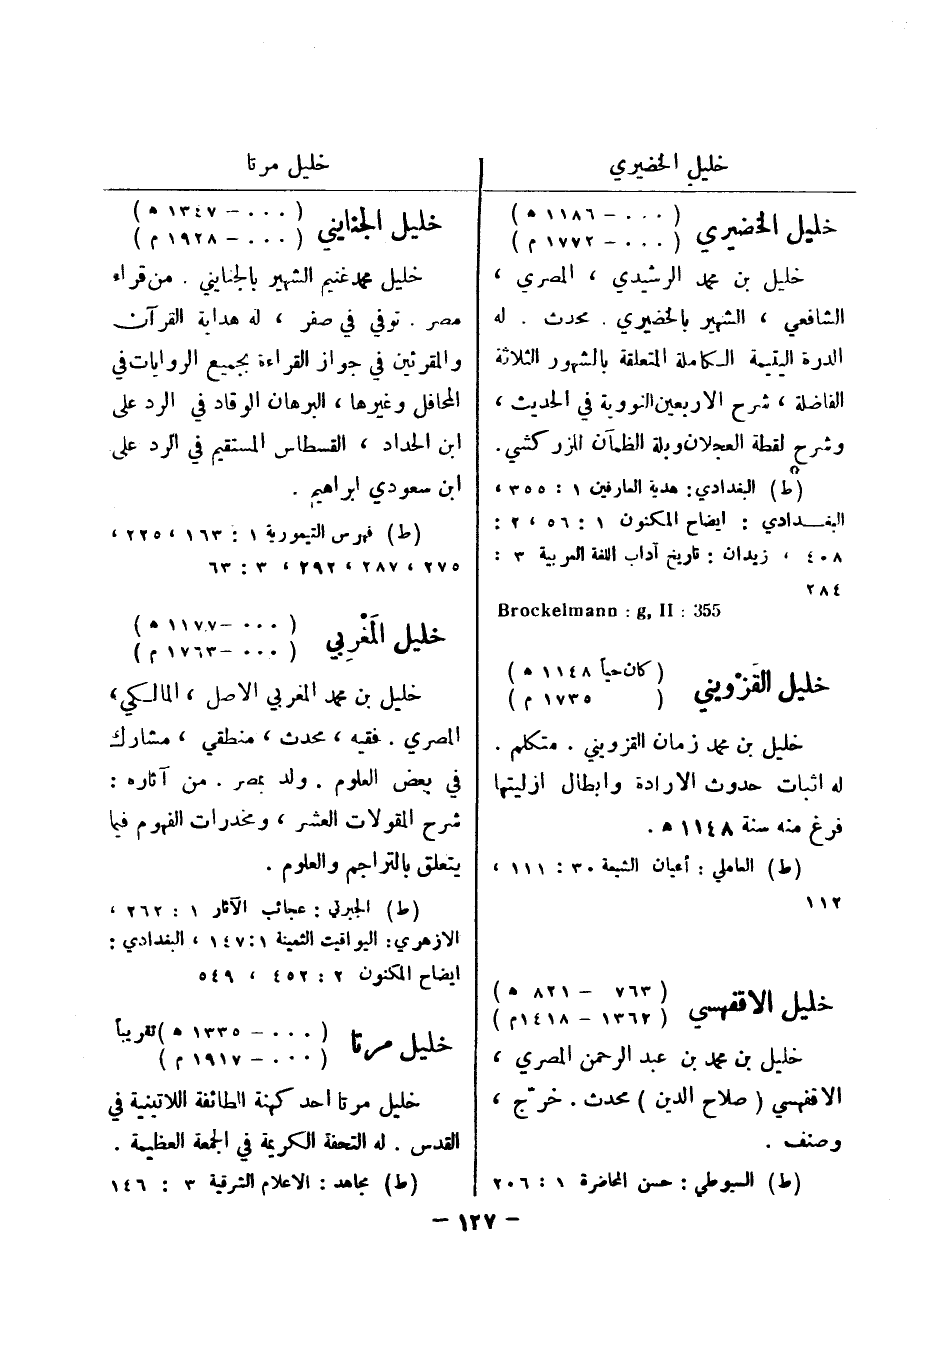 خليل الخضيري
خليل الخضيري
( ٠٠٠ – ١١٨٦ ه )
( ٠٠٠ – ١٧٧٢ م )
خليل بن محمد الرشيدي ، المصري ،
الشافعي ، الشهير بالخضيري . محدث . له
الدرة اليتيمة الكاملة المتعلقة بالشهور الثلاثة
الفاضلة ، شرح الاربعين النووية في الحديث ،
وشرح لقطة العجلان وبلة الظمآن للزركشي .
(ط) البغدادي : هدية العارفين ١ : ٣٥٥ ،
البغدادي : ايضاح المكنون ١ : ٥٦ ، ٢ :
٤٠٨ ، زيدان : تاريخ آداب اللغة العربية ٣ :
٢٨٤
Brockelmann : g, II : 355
خليل القَزْويني
( كان حياً ١١٤٨ ه )
( ١٧٣٥ م )
خليل بن محمد زمان القزويني . متكلم .
له اثبات حدوث الارادة وابطال ازليتها
فرغ منه سنة ١١٤٨ ه .
(ط) العاملي : أعيان الشيعة ٣٠ : ١١١ ،
١١٢
خليل الاقفهسي
( ٧٦٣ – ٨٢١ ه )
( ١٣٦٢ – ١٤١٨ م )
خليل بن محمد بن عبد الرحمن المصري ،
الاقفهسي ( صلاح الدين ) محدث . خرّج ،
وصنف .
(ط) السيوطي : حسن المحاضرة ١ : ٢٠٦
خليل مرتا
خليل الجنايني
( ٠٠٠ – ١٣٤٧ ه )
( ٠٠٠ – ١٩٢٨ م )
خليل محمد غنيم الشهير بالجنايني . من قراء
مصر . توفي في صفر ، له هداية القرآن
والمقرئين في جواز القراءة بجميع الروايات في
المحافل وغيرها ، البرهان الوقاد في الرد على
ابن الحداد ، القسطاس المستقيم في الرد على
ابن سعودي ابراهيم .
(ط) فهرس التيمورية ١ : ١٦٣ ، ٢٢٥ ،
٢٧٥ ، ٢٨٧ ، ٢٩٢ ، ٣ : ٦٣
خليل المَغْرِبي
( ٠٠٠ – ١١٧٧ ه )
( ٠٠٠ – ١٧٦٣ م )
خليل بن محمد المغربي الاصل ، المالكي ،
المصري . فقيه ، محدث ، منطقي ، مشارك
في بعض العلوم . ولد بمصر . من آثاره :
شرح المقولات العشر ، ومخدرات الفهوم فيما
يتعلق بالتراجم والعلوم .
(ط) الجبرتي : عجائب الآثار ١ : ٢٦٢ ،
الازهري : اليواقيت الثمينة ١ : ١٤٧ ، البغدادي :
ايضاح المكنون ٢ : ٤٥٢ ، ٥٤٩
خليل مرتا
( ٠٠٠ – ١٣٣٥ ه ) تقريباً
( ٠٠٠ – ١٩١٧ م )
خليل مرتا احد كهنة الطائفة اللاتينية في
القدس . له التحفة الكريمة في الجمعة العظيمة .
(ط) مجاهد : الاعلام الشرقية ٣ : ١٤٦
– ١٢٧ –